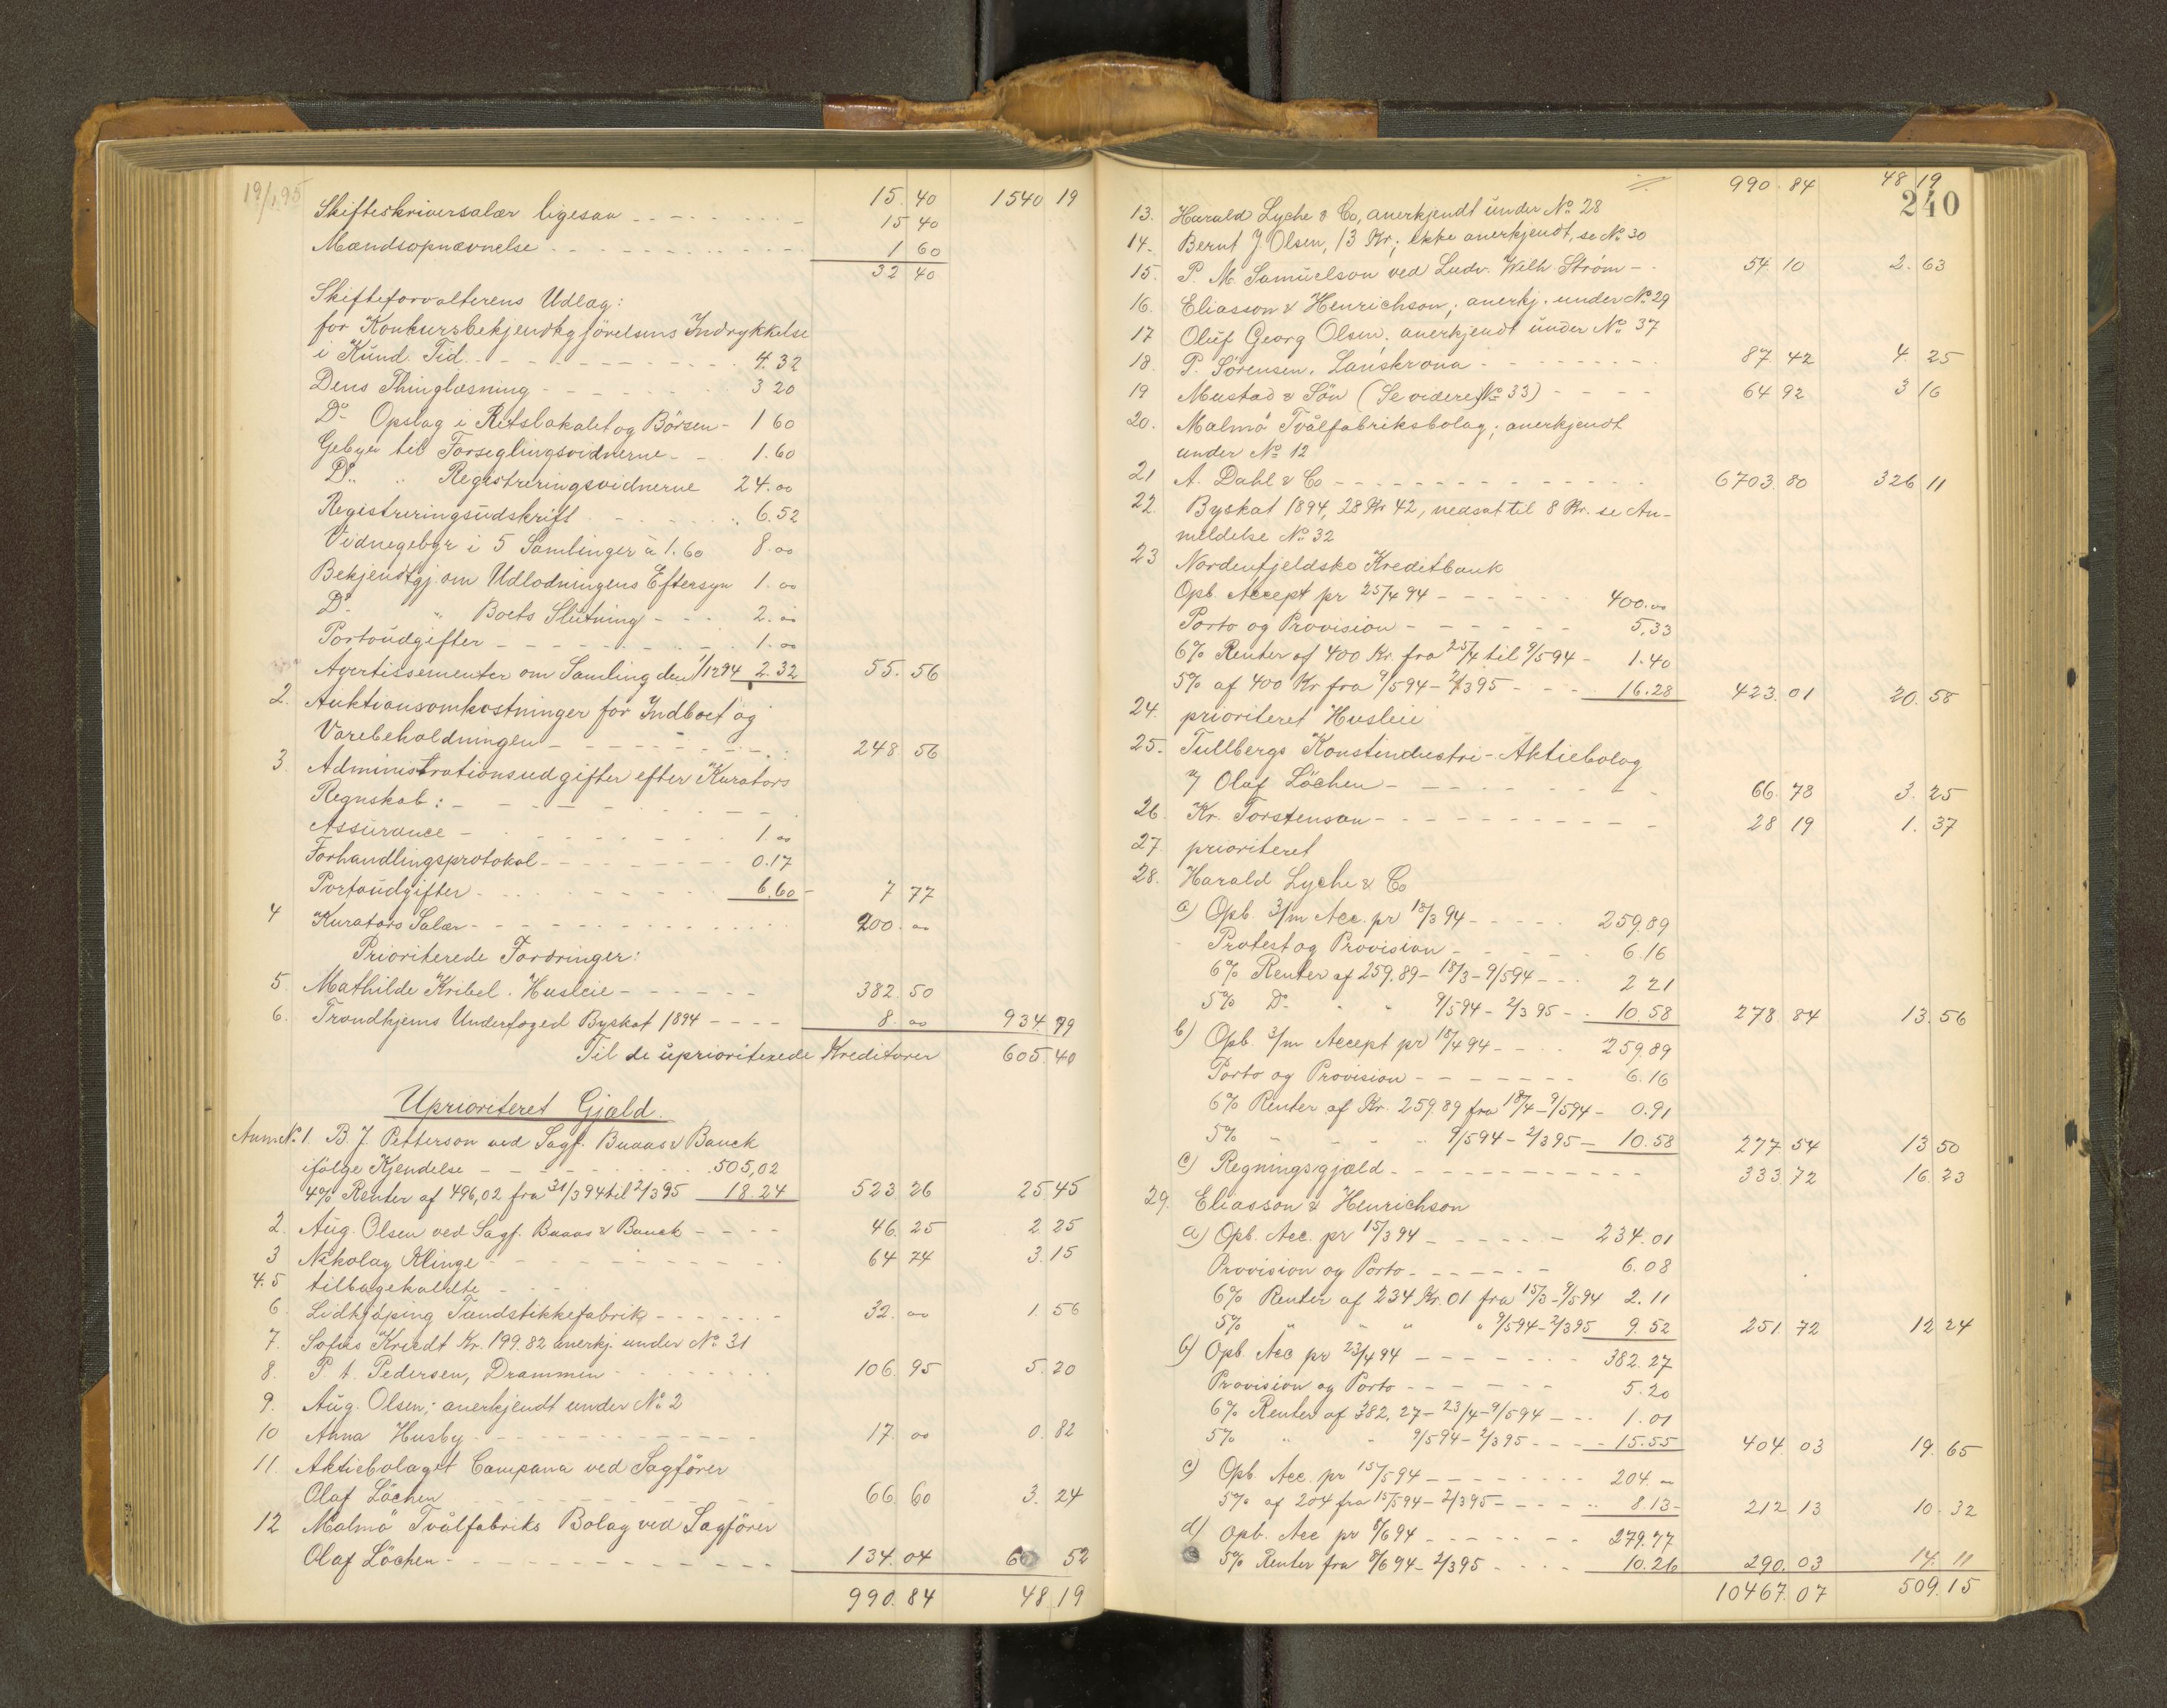 19/1 95
15. 40 1540 19
Skifteskriversalær ligesaa 15 40
Mændsopnævnelse 1 60
32 40
Skifteforvalterens Udlæg:
for Konkursbekjendtgjörelsens Indrykkelse
i Kund. Tid. 4.32
Dens Thinglæsning 3 20
Do Opslag i Retslokalet og Börsen 1 60
Gebyr til Forseglingsvidnerne 1.60
Do „ Registreringsvidnerne 24.00
Registreringsudskrift 6.52
Vidnegebyr i 5 Samlinger à 1.60 8.00
Bekjendtgj. om Udlodningens Eftersyn 1.00
Do „ Boets Slutning 2.00
Portoudgifter 1.00
Avertissementer om Samling den 1/12 94 2.32 55. 56
2. Auktionsomkostninger for Indboet og
Varebeholdningen 248 56
3. Administrationsudgifter efter Kurators
Regnskab:
Assurance 1.00
Forhandlingsprotokol 0.17
Portoudgifter 6.60 7 77
4 Kurators Salær 200.00
Prioriterede Fordringer:
5. Mathilde Kribel. Husleie 382.50
6. Trondhjems Underfoged Byskat 1894 8.00 934.79
Til de uprioriterede Kreditorer 605.40
Uprioriteret Gjæld.
Anm. No. 1. B. J. Petterson ved Sagf. Buaas & Bauck
ifölge Kjendelse 505,02
4% Renter af 496,02 fra 31/3 94 til 2/3 95 18.24 523 26 25.45
2. Aug. Olsen ved Sagf. Buaas & Bauck 46. 25 2. 25
3 Nikolay Klinge 64 74 3.15
4.5 tilbagekaldte
6. Lidkjöping Tændstikkefabrik 32.00 1 56
7. Sofus Kriedt Kr. 199.82 anerkj. under No. 31
8. P. A. Pedersen, Drammen 106. 95 5. 20
9. Aug. Olsen; anerkjendt under No. 2
10 Anna Husby 17.00 0.82
11. Aktiebolaget Campana ved Sagförer
Olaf Löchen 66. 60 3. 24
12 Malmö Tvålfabriks Bolag ved Sagförer
Olaf Löchen 134.04 6 52
990. 84 48.19
990. 84 48 19
240
13. Harald Lyche & Co, anerkjendt under No. 28
14. Bernt J. Olsen, 13 Kr; ikke anerkjendt, se No. 30
15. P. M. Samuelson ved Ludv. Wilh. Ström 54 10 2. 63
16. Eliasson & Henrichson; anerkj. under No. 29
17 Oluf Georg Olsen; anerkjendt under No. 37
18. P. Sörensen, Lanskrona 87.42 4. 25
19 Mustad & Sön (Se videre No. 33) 64 92 3 16
20. Malmö Tvålfabriksbolag; anerkjendt
under No. 12
21 A. Dahl & Co 6703. 80 326 11
22. Byskat 1894, 28 Kr 42, nedsat til 8 Kr. se An-
meldelse No. 32
23 Nordenfjeldske Kreditbank
Opb. Accept pr 25/4 94 400.00
Porto og Provision 5,33
6% Renter af 400 Kr. fra 25/4 til 9/5 94 1.40
5% af 400 Kr fra 9/5 94 - 2/3 95 16.28 423.01 20.58
24. prioriteret Husleie
25. Tullbergs Konstindustri-Aktiebolag
v/ Olaf Löchen 66. 78 3. 25
26. Kr. Torstenson 28 19 1. 37
27. prioriteret
28. Harald Lyche & Co
a) Opb. 3/m Acc. pr 18/3 94 259.89
Protest og Provision 6.16
6% Renter af 259.89 - 18/3 - 9/5 94 2 21
5% Do 9/5 94 - 2/3 95 10.58 278 84 13.56
b) Opb. 3/m Accept pr 18/4 94 259.89
Porto og Provision 6.16
6% Renter af Kr. 259.89 fra 18/4 - 9/5 94 0.91
5% „ 9/5 94 - 2/3 95 10.58 277 54 13 50
c) Regningsgjæld 333.72 16. 23
29. Eliasson & Henrichson
a) Opb. Acc. pr 15/3 94 234.01
Provision og Porto 6.08
6% Renter af 234 Kr. 01 fra 15/3 - 9/5 94 2.11
5% „ „ „ 9/5 94 - 2/3 95 9.52 251. 72 12 24
b) Opb. Acc pr 23/4 94 382.27
Provision og Porto 5.20
6% Renter af 382,27 - 23/4 - 9/5 94 1.01
5% „ 9/5 94 - 2/3 95 15.55 404.03 19. 65
c) Opb. Acc. pr 15/5 94 204.-
5% af 204 fra 15/5 94 - 2/3 95 8.13 212 13 10. 32
d) Opb. Acc pr 8/6 94 279.77
5% Renter fra 8/6 94 - 2/3 95 10.26 290.03 14. 11
10467. 07 509. 15